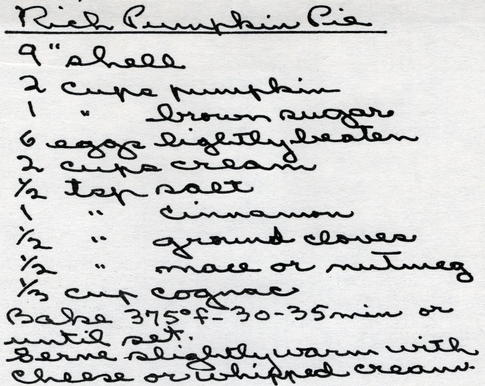 Rich Pumpkin Pie
9" shell
2 cups pumpkin
1 " brown sugar
6 eggs lightly beaten
2 cups cream
1/2 tsp salt
1 " cinnamon
1/2 " ground cloves
1/2 " mace or nutmeg
1/3 cup cognac
Bake 375°f-30-35min or
until set.
Serve slightly warm with
cheese or whipped cream.